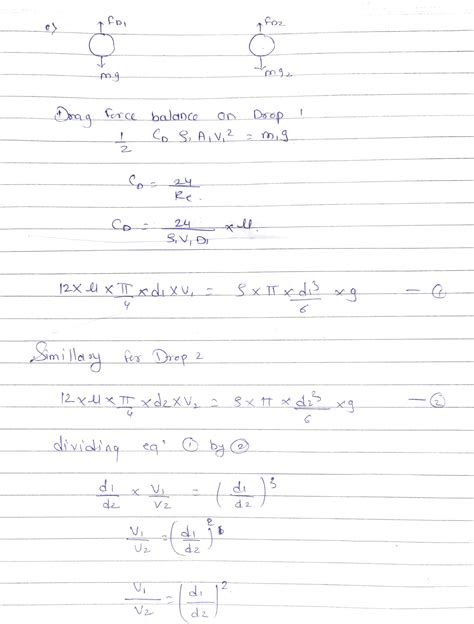 e) FD1 FD2
mg mg2
Drag force balance on Drop 1
1/2 CD ρ1 A1 V1² = m1g
CD = 24/Re.
CD = 24/(ρ1 V1 D1) × μ.
12 × μ × π/4 × d1 × V1 = ρ × π × d1³/6 × g — ①
Simillary for Drop 2
12 × μ × π/4 × d2 × V2 = ρ × π × d2³/6 × g — ②
dividing eqⁿ ① by ②
d1/d2 × V1/V2 = (d1/d2)³
V1/V2 = (d1/d2)²
V1/V2 = (d1/d2)²